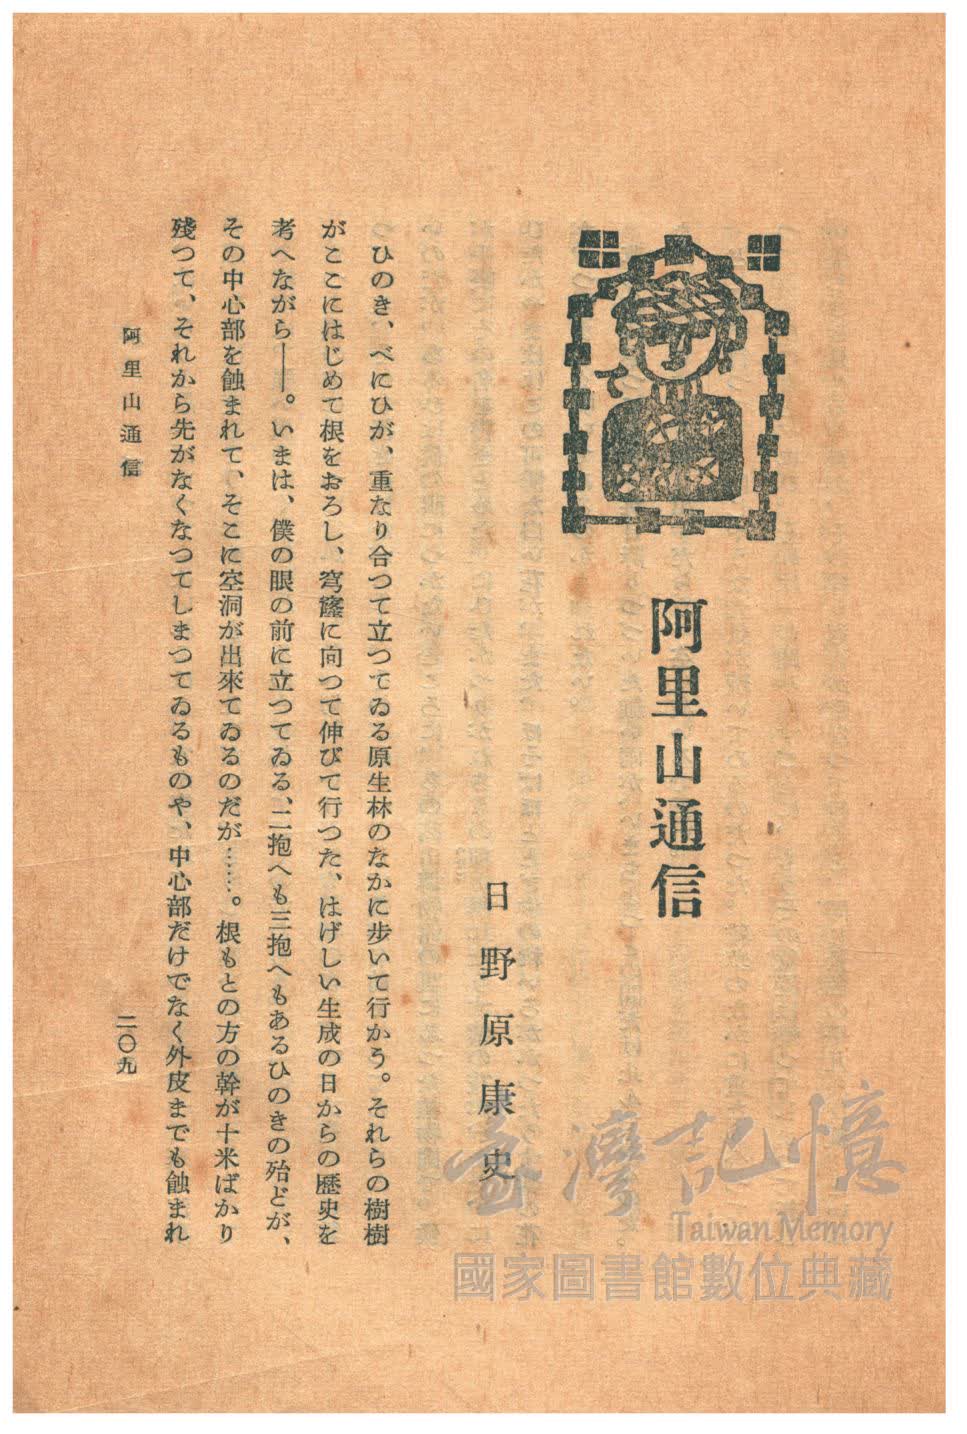 阿里山通信
日野原康史
ひのき、べにひが、重なり合つて立つてゐる原生林のなかに歩いて行かう。それらの樹樹
がここにはじめて根をおろし、穹窿に向つて伸びて行つた、はげしい生成の日からの歴史を
考へながら――。いまは、僕の眼の前に立つてゐる、二抱へも三抱へもあるひのきの殆どが、
その中心部を蝕まれて、そこに空洞が出來てゐるのだが……。根もとの方の幹が十米ばかり
殘つて、それから先がなくなつてしまつてゐるものや、中心部だけでなく外皮までも蝕まれ
阿里山通信
二〇九
臺灣記憶
Taiwan Memory
國家圖書館數位典藏